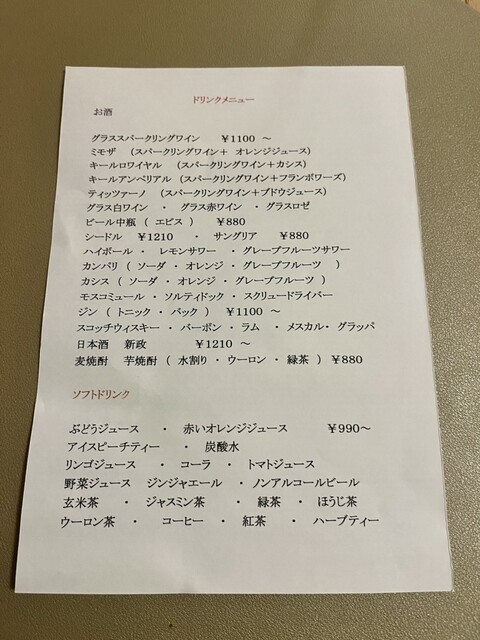 ドリンクメニュー
お酒
グラススパークリングワイン ￥1100 ～
ミモザ (スパークリングワイン＋ オレンジジュース)
キールロワイヤル (スパークリングワイン＋カシス)
キールアンペリアル (スパークリングワイン＋フランボワーズ)
ティッツァーノ (スパークリングワイン＋ブドウジュース)
グラス白ワイン ・ グラス赤ワイン ・グラスロゼ
ビール中瓶 ( エビス ) ￥880
シードル ￥1210 ・ サングリア ￥880
ハイボール ・ レモンサワー ・グレープフルーツサワー
カンパリ ( ソーダ ・ オレンジ ・ グレープフルーツ )
カシス ( ソーダ ・ オレンジ ・ グレープフルーツ )
モスコミュール ・ ソルティドック ・ スクリュードライバー
ジン ( トニック ・ バック ) ￥1100 ～
スコッチウィスキー ・ バーボン ・ ラム ・ メスカル・ グラッパ
日本酒 新政 ￥1210 ～
麦焼酎 芋焼酎 ( 水割り ・ ウーロン ・ 緑茶 ) ￥880
ソフトドリンク
ぶどうジュース ・ 赤いオレンジジュース ￥990～
アイスピーチティー ・ 炭酸水
リンゴジュース ・ コーラ ・ トマトジュース
野菜ジュース ジンジャエール ・ノンアルコールビール
玄米茶 ・ ジャスミン茶 ・ 緑茶 ・ ほうじ茶
ウーロン茶 ・ コーヒー ・ 紅茶 ・ ハーブティー